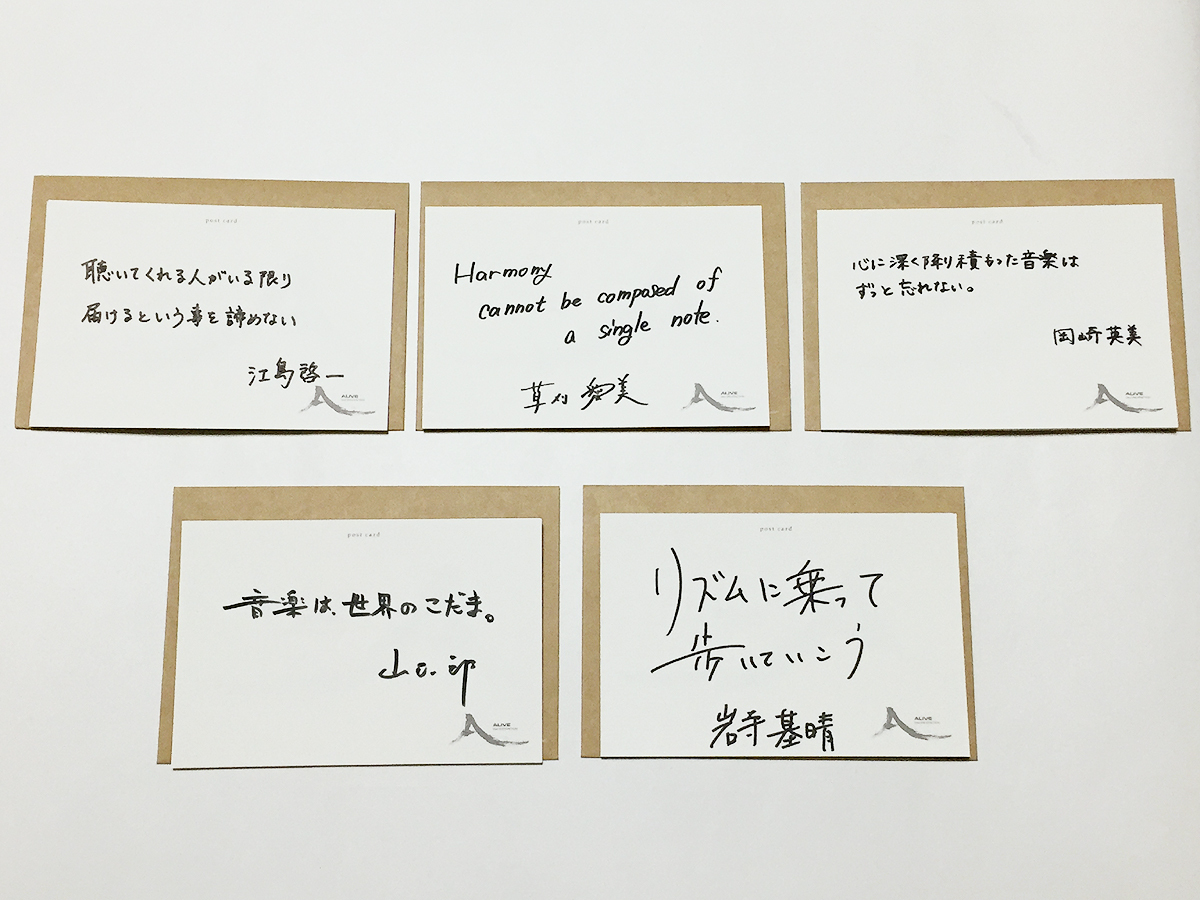 post card
聴いてくれる人がいる限り
届けるという事を諦めない
江島啓一
ALIVE
post card
Harmony
cannot be composed of
a single note.
草刈愛美
ALIVE
post card
心に深く降り積もった音楽は
ずっと忘れない。
岡崎英美
ALIVE
post card
音楽は、世界のこだま。
山口一郎
ALIVE
post card
リズムに乗って
歩いていこう
岩寺基晴
ALIVE